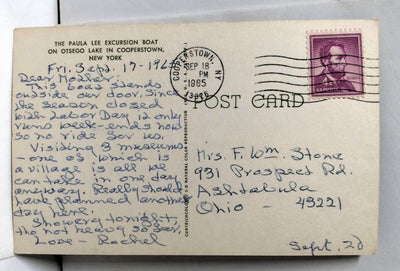 THE PAULA LEE EXCURSION BOAT
ON OTSEGO LAKE IN COOPERSTOWN,
NEW YORK
Fri. Sept. 17-196
Dear Mother:
This boat stands
outside our door. Since
the season closed
with Labor Day it only
runs week-ends now
so no ride for us.
Visiting 3 museums
- one of which is
a village is all we
can take in one day
anyway. Really should
have planned another
day here.
Showery tonight,
tho not heavy so far.
Love - Rachel
COOPERSTOWN, NY
SEP 18
PM
1965
POST CARD
Mrs. F. Wm. Stone
931 Prospect Rd.
Ashtabula
Ohio - 49221
Sept. 20